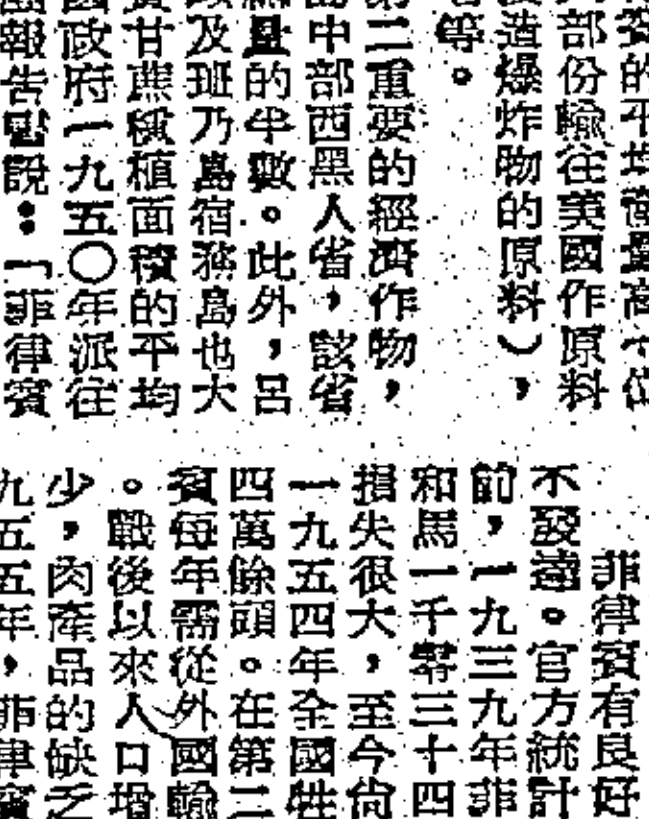 賓的平均
部份輸往美國作原料
造爆炸物的原料），
等。
二重要的經濟作物，
中部西黑人省，該省
量的半數。此外，呂
及班乃島宿務島也大
甘蔗種植面積的平均
政府一九五〇年派往
報告說：「菲律賓
菲律賓有良好
不發達。官方統計
前，一九三九年菲
和馬一千零三十四
損失很大，至今尚
一九五四年全國牲
四萬餘頭。在第二
賓每年需從外國輸
。戰後以來人口增
少，肉產品的缺乏
九五五年，菲律賓